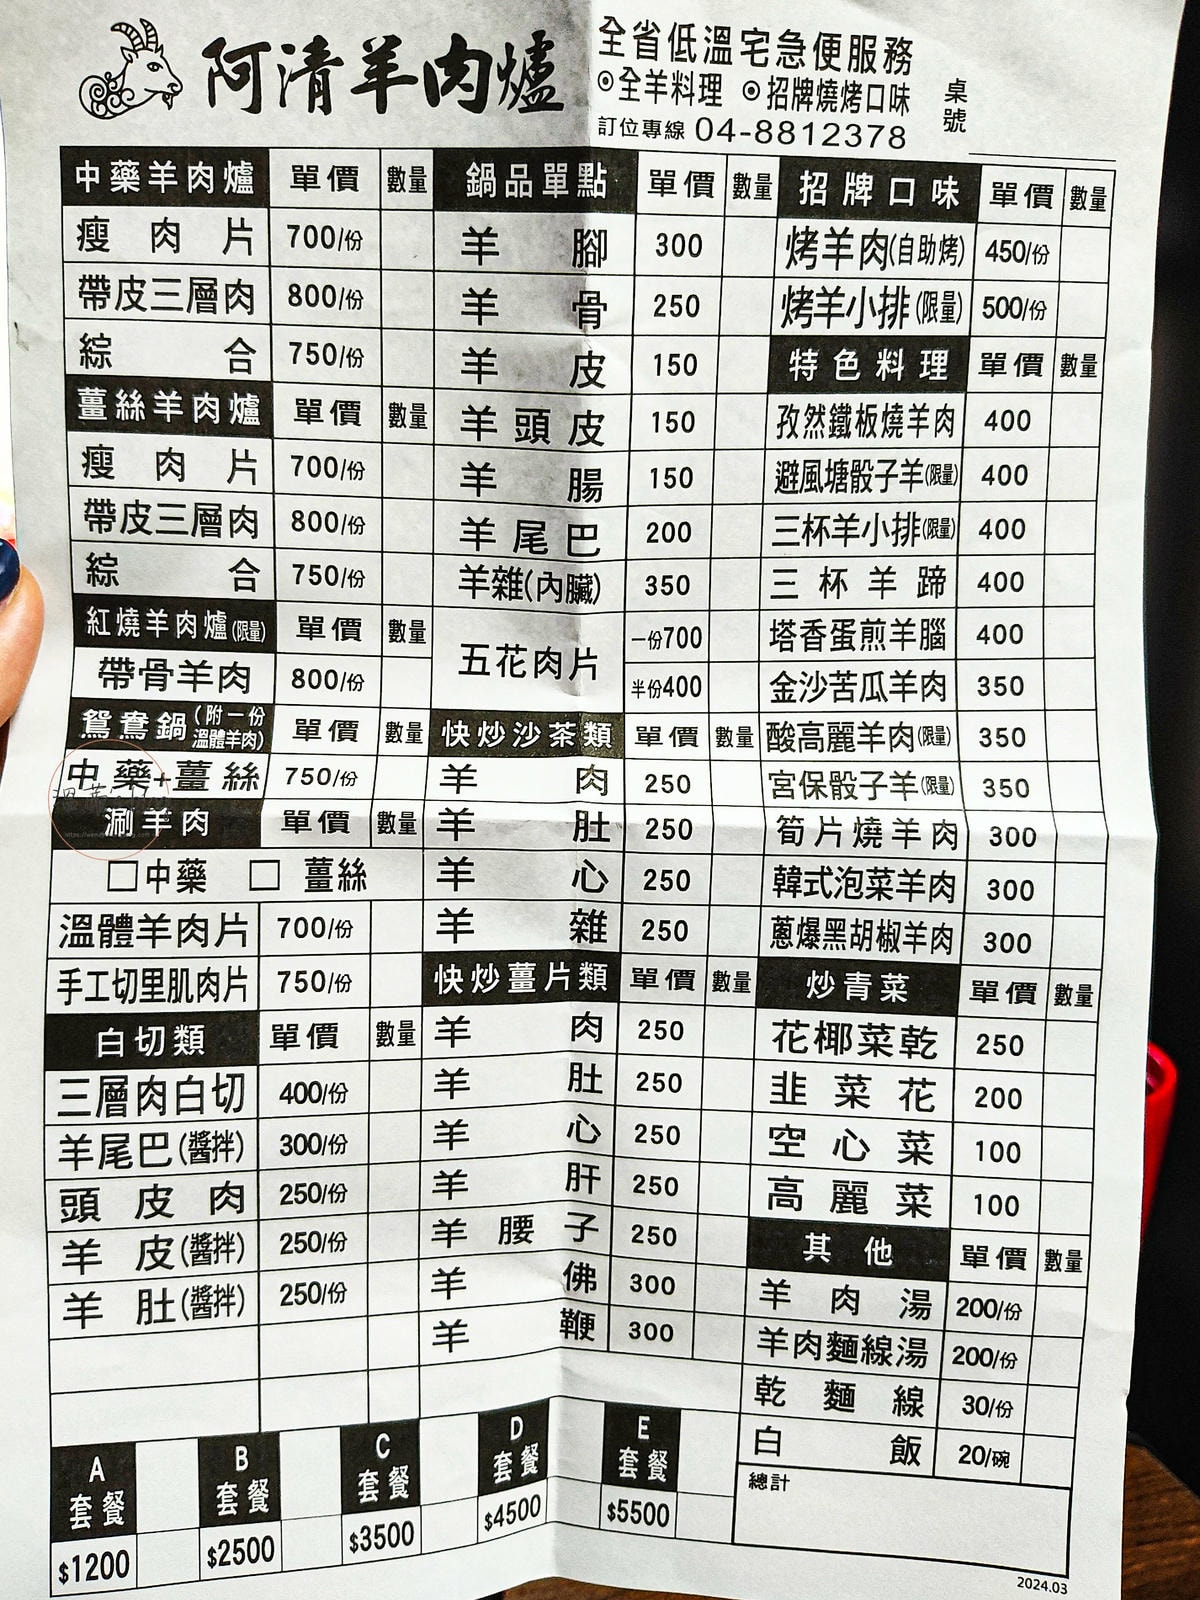 阿清羊肉爐
全省低溫宅急便服務
⊙全羊料理 ⊙招牌燒烤口味
訂位專線 04-8812378
桌號
中藥羊肉爐 單價 數量
瘦肉片 700/份
帶皮三層肉 800/份
綜合 750/份
薑絲羊肉爐 單價 數量
瘦肉片 700/份
帶皮三層肉 800/份
綜合 750/份
紅燒羊肉爐(限量) 單價 數量
帶骨羊肉 800/份
鴛鴦鍋(附一份溫體羊肉) 單價 數量
中藥+薑絲 750/份
涮羊肉 單價 數量
□中藥 □薑絲
溫體羊肉片 700/份
手工切里肌肉片 750/份
白切類 單價 數量
三層肉白切 400/份
羊尾巴(醬拌) 300/份
頭皮肉 250/份
羊皮(醬拌) 250/份
羊肚(醬拌) 250/份
鍋品單點 單價 數量
羊腳 300
羊骨 250
羊皮 150
羊頭皮 150
羊腸 150
羊尾巴 200
羊雜(內臟) 350
五花肉片 一份700
半份400
快炒沙茶類 單價 數量
羊肉 250
羊肚 250
羊心 250
羊雜 250
快炒薑片類 單價 數量
羊肉 250
羊肚 250
羊心 250
羊肝 250
羊腰子 250
羊佛 300
羊鞭 300
招牌口味 單價 數量
烤羊肉(自助烤) 450/份
烤羊小排(限量) 500/份
特色料理 單價 數量
孜然鐵板燒羊肉 400
避風塘骰子羊(限量) 400
三杯羊小排(限量) 400
三杯羊蹄 400
塔香蛋煎羊腦 400
金沙苦瓜羊肉 350
酸高麗羊肉(限量) 350
宮保骰子羊(限量) 350
筍片燒羊肉 300
韓式泡菜羊肉 300
蔥爆黑胡椒羊肉 300
炒青菜 單價 數量
花椰菜乾 250
韭菜花 200
空心菜 100
高麗菜 100
其他 單價 數量
羊肉湯 200/份
羊肉麵線湯 200/份
乾麵線 30/份
白飯 20/碗
總計
A套餐 $1200
B套餐 $2500
C套餐 $3500
D套餐 $4500
E套餐 $5500
2024.03